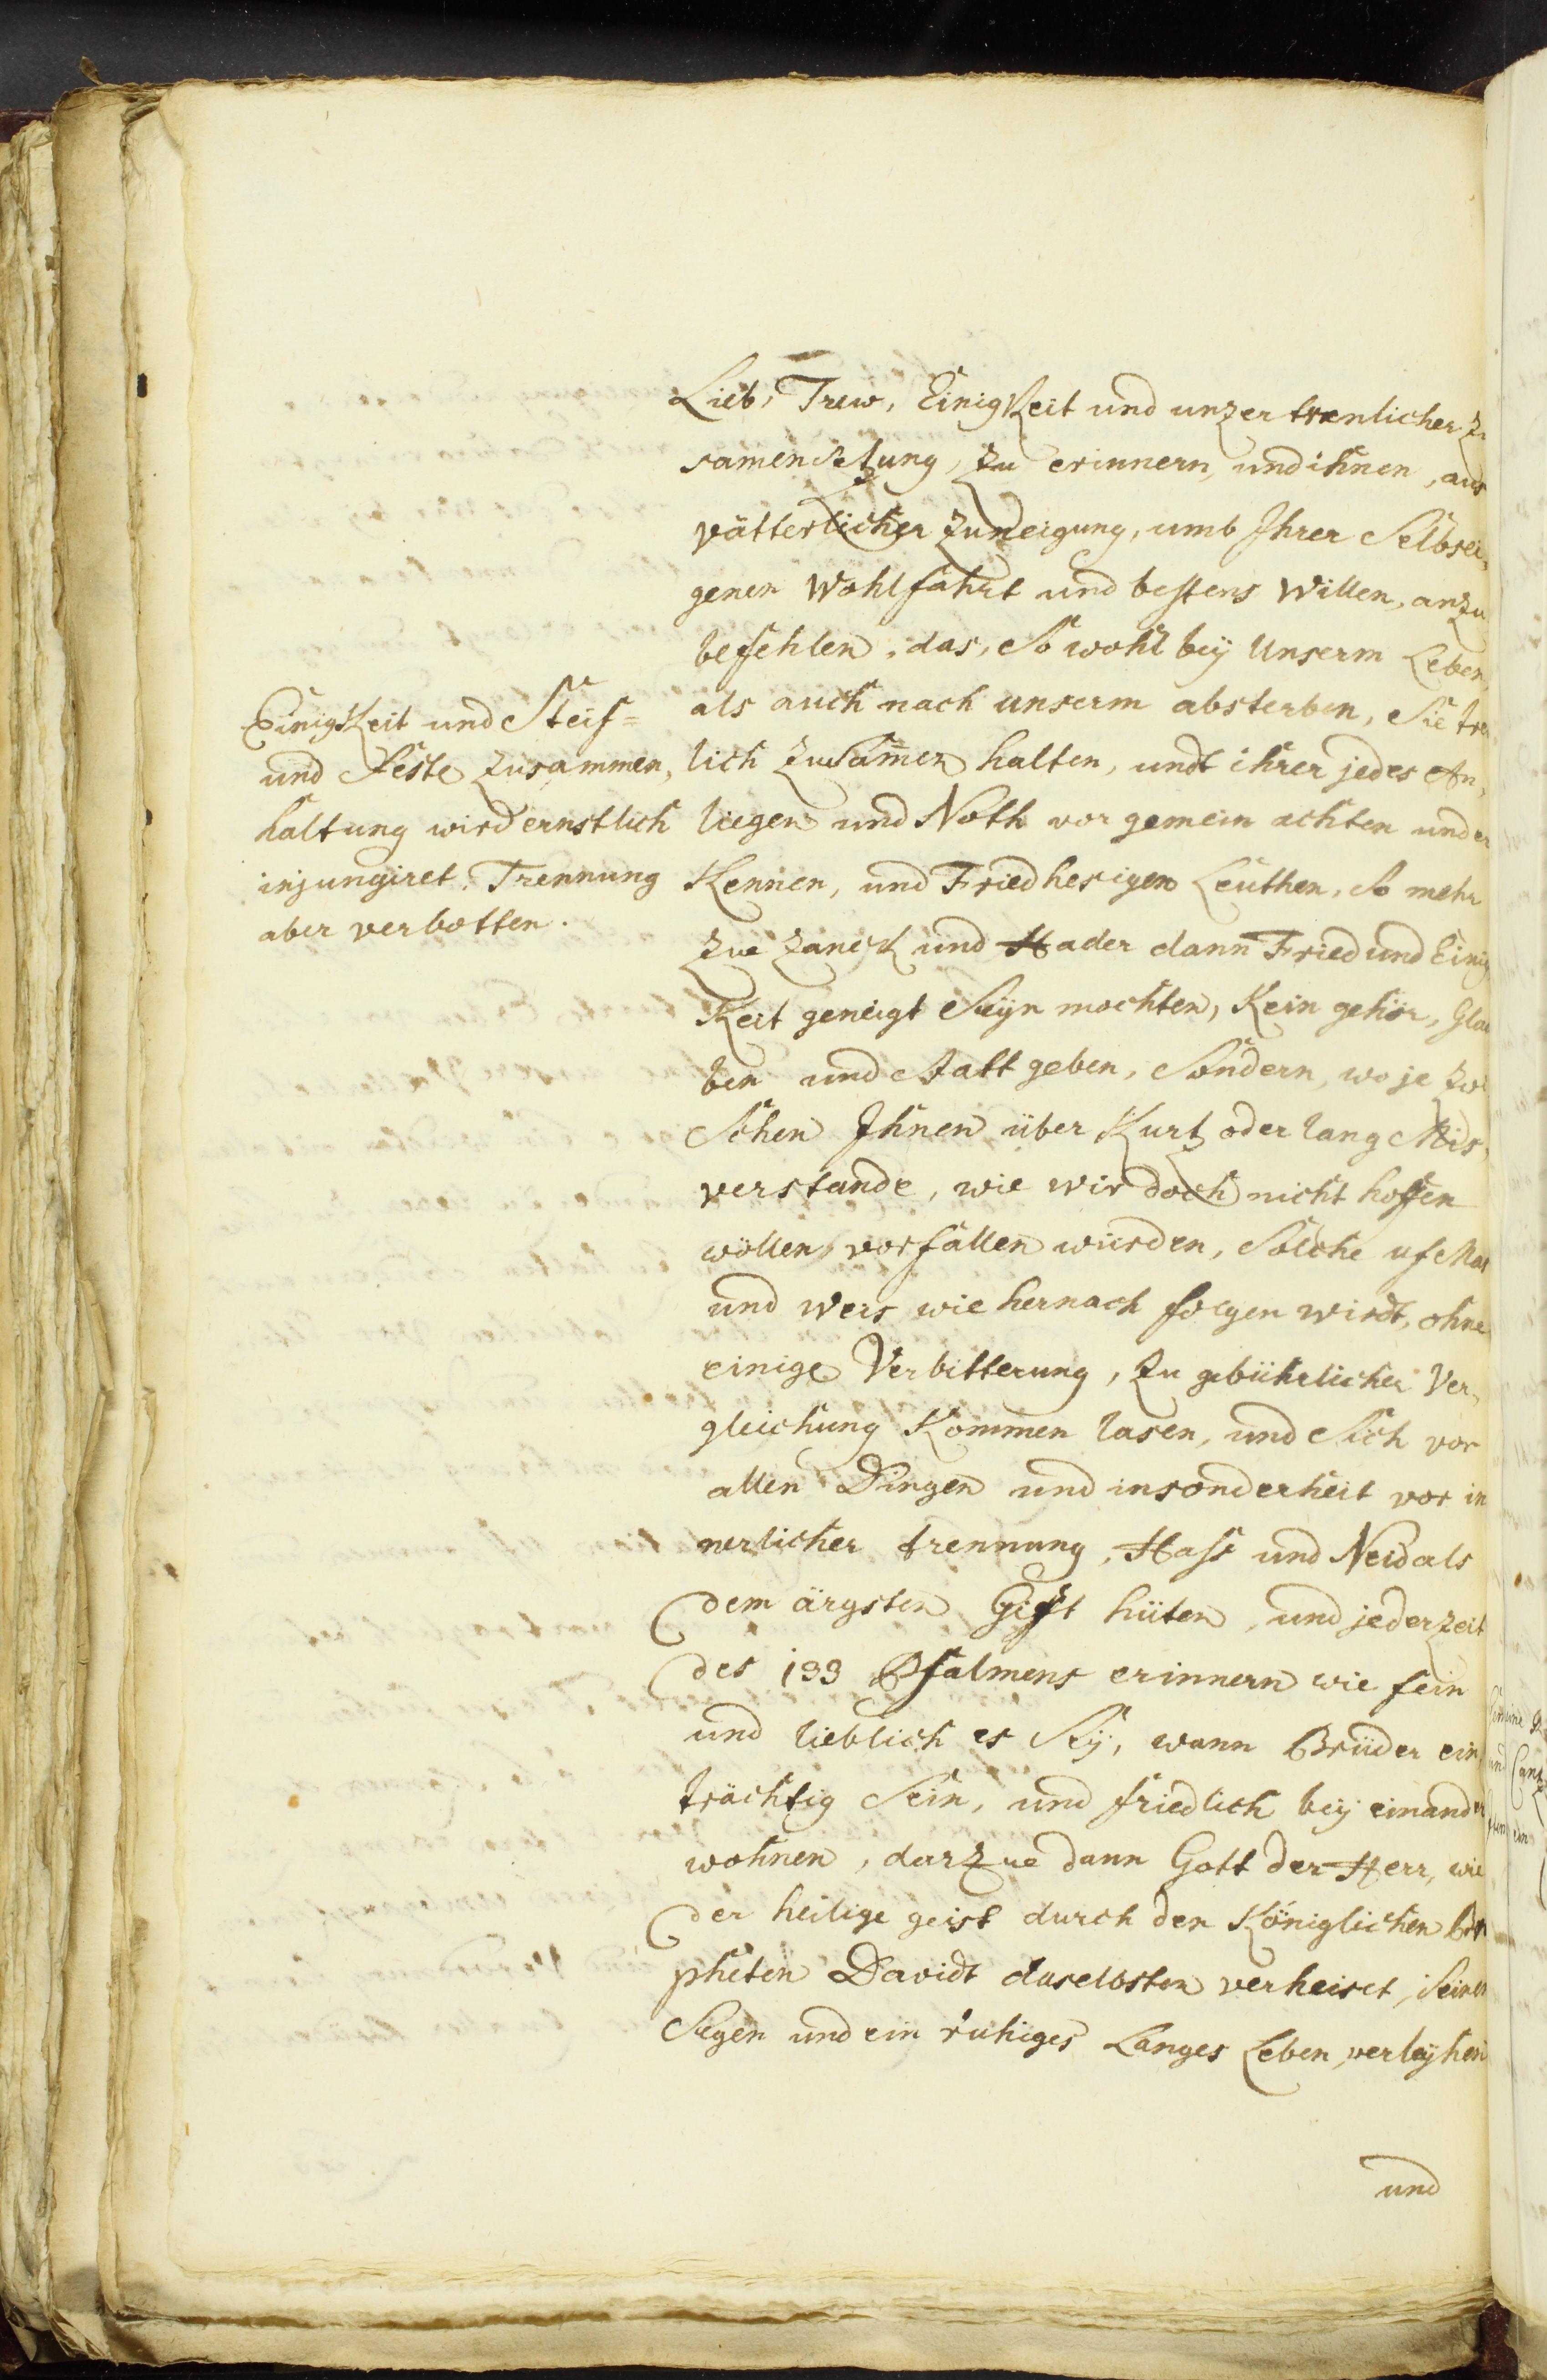 Lieb, Trew, Einigkeit und unzertrenlicher Zu
samensezung, zu erinnern, und ihnen, aus
vätterlicher Zuneigung, umb Ihrer Selbsei,
genen Wohlfahrt und bestens Willen, anzu
befehlen, das, So wohl beÿ Unserm Leben,
als auch nach unserm absterben, Sie treu
lich zusam̄en halten, undt ihrer jedes An,
liegen und Noth vor gemein achten und er
Kennen, und Friedhesigen Leuthen, So mehr
zue Zanck und Hader dann Fried und Einig
Keit geneigt Seÿn mochten, Kein gehör, Glau
ben und Statt geben, Sondern, wo je zwi
Schen Ihnen über Kurtz oder lang Mis,
verstande, wie wir doch nicht hoffen
wöllen, vorfallen würden, Solche uf Mas
und Weis wie hernach folgen wirdt, ohne
einige Verbitterung, zu gebührlicher Ver,
gleichung Kommen lasen, und Sich vor
allen Dingen und insonderheit vor in
nerlicher trennung, Hass und Neid als
dem ärgsten Gifft hüten, und jederzeit
des 133 Psalmens erinnern wie fein
und lieblich es Seÿ, wann Brüder ein
trächtig Sein, und friedlich beÿ einander
wohnen, darzue dann Gott der Herr, wie
der heilige geist durch den Königlichen Pro
pheten Davidt daselbsten verheiset, Seinen
Segen und ein ruhiges Langes Leben, verleÿhen
und
Einigkeit und Steif=
und Feste zusammen,
haltung wird ernstlich
injungiret. Trennung
aber verbotten.